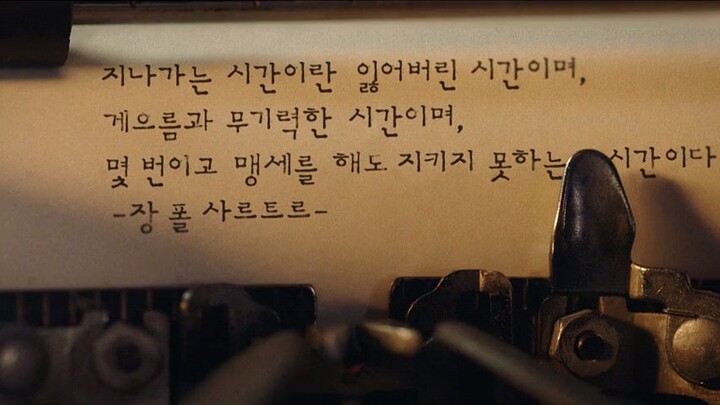 지나가는 시간이란 잃어버린 시간이며,
게으름과 무기력한 시간이며,
몇 번이고 맹세를 해도 지키지 못하는 시간이다
-장 폴 사르트르-